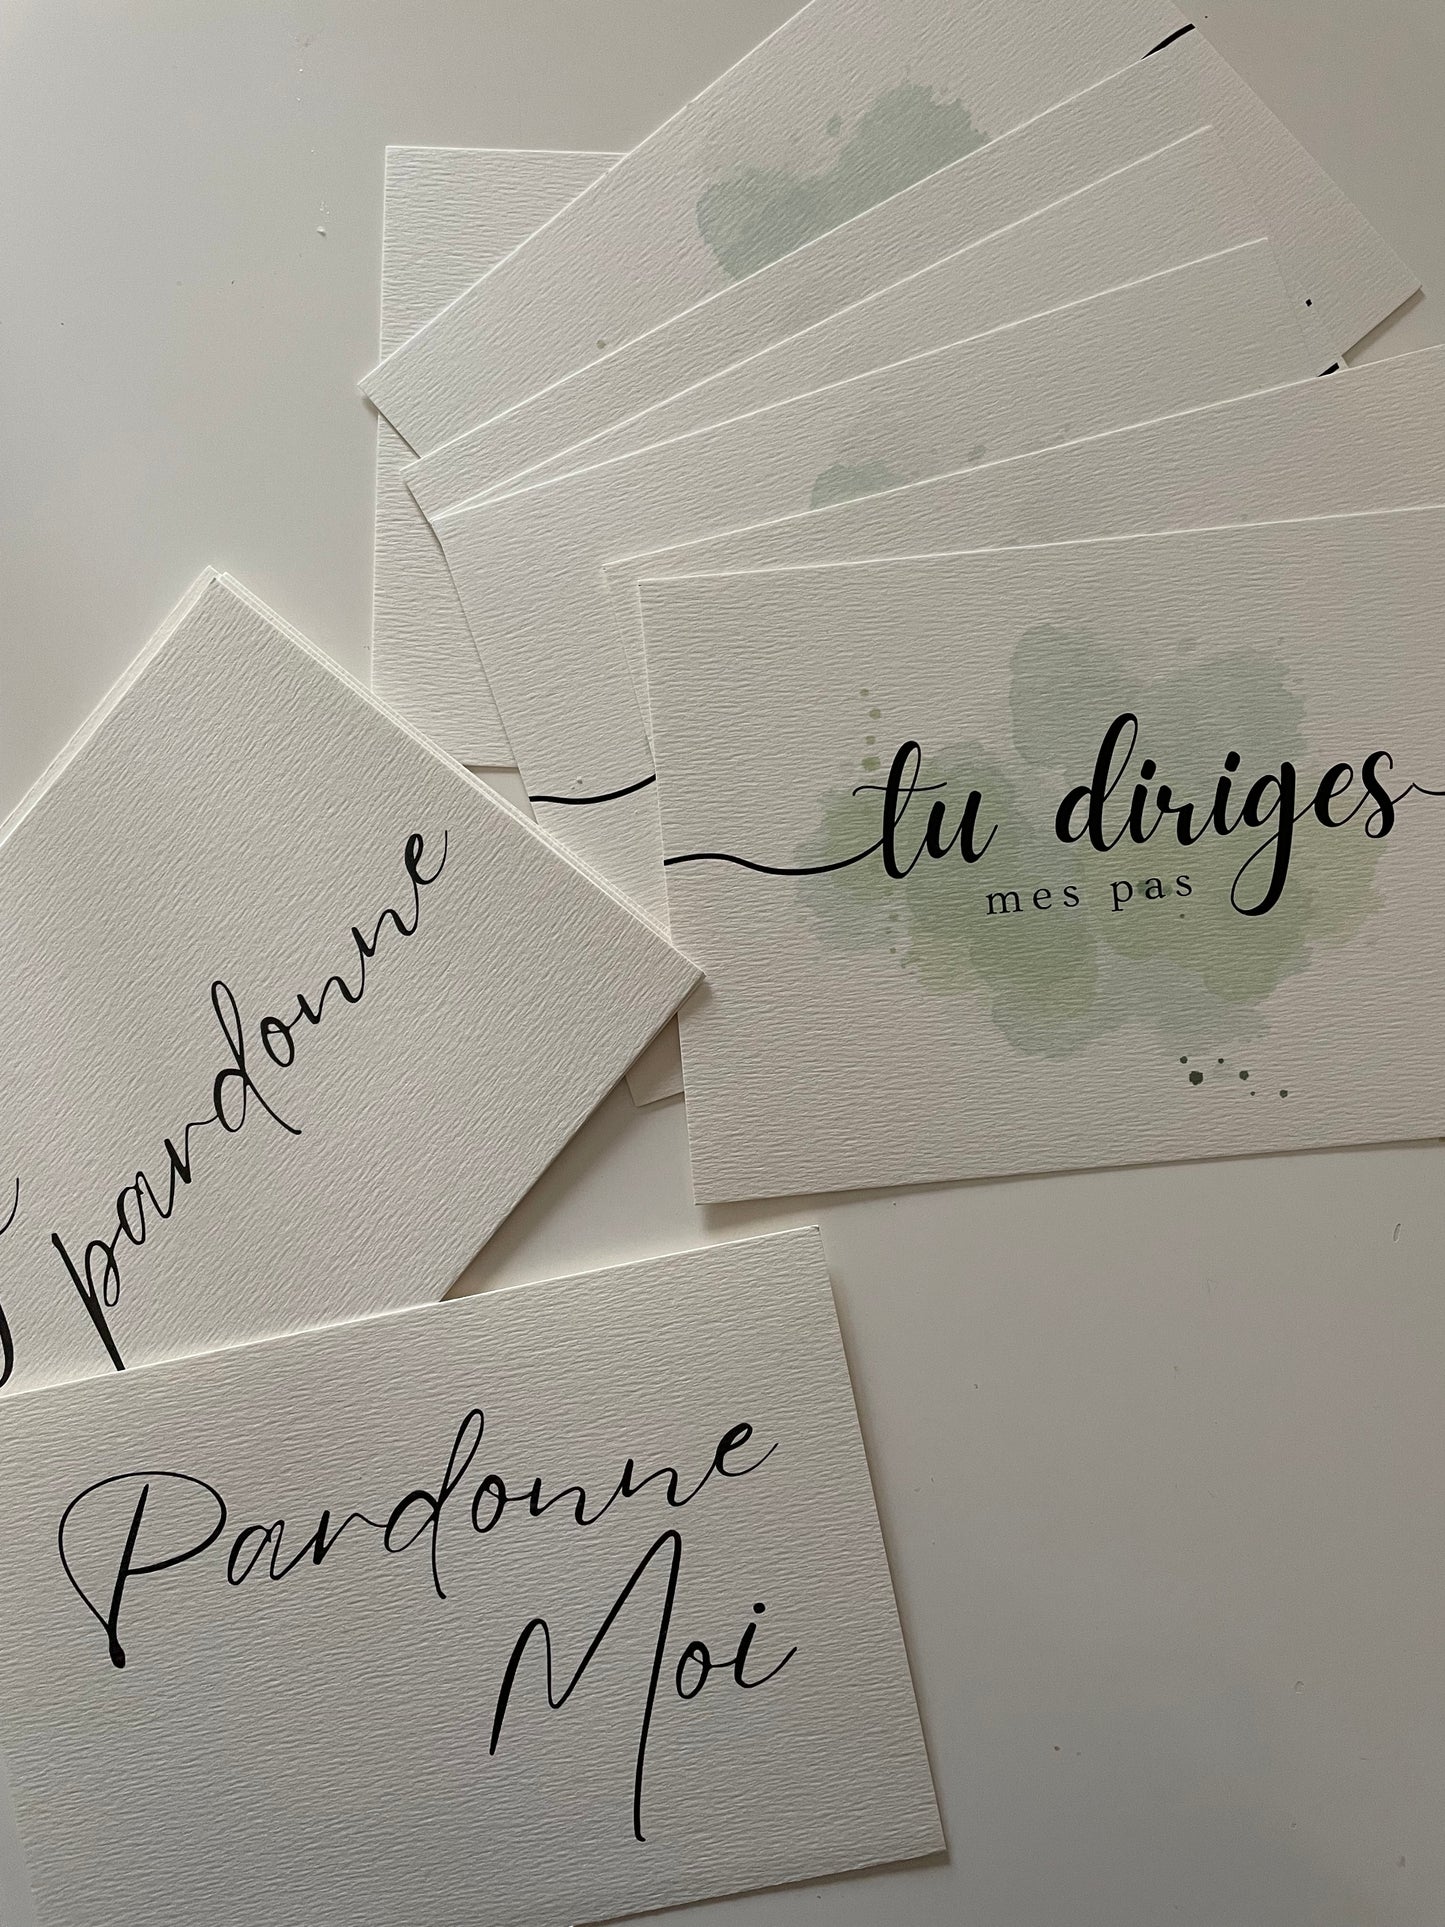 tu diriges
mes pas
pardonne
Pardonne
Moi